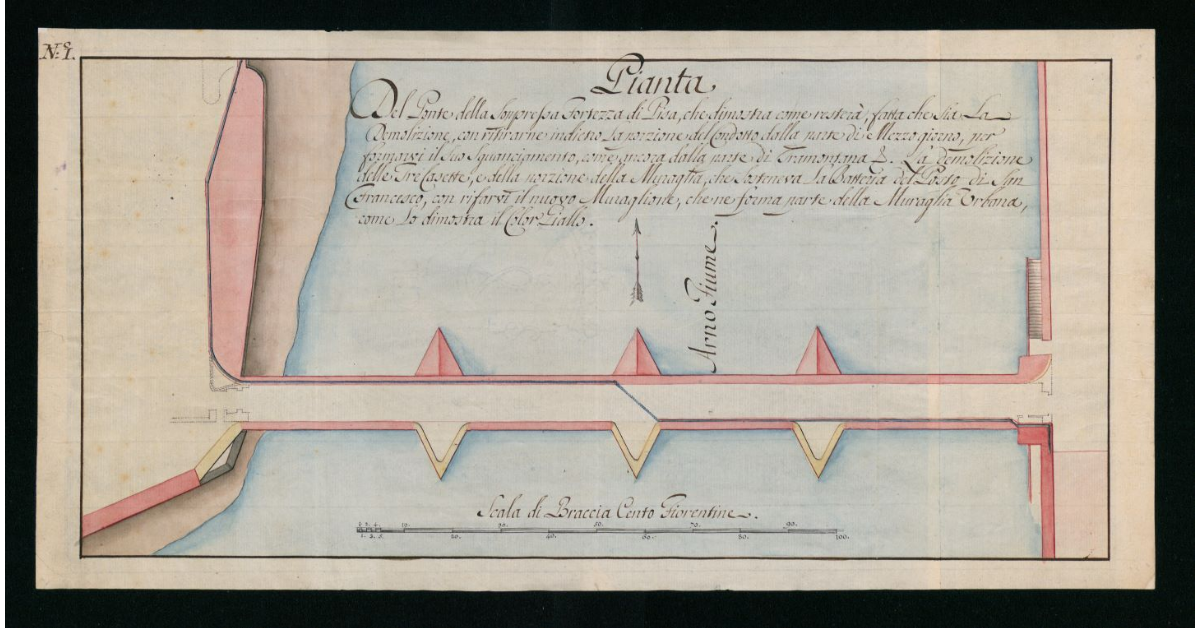 N.º I.
Pianta
Del Ponte della Soppressa Fortezza di Pisa, che dimostra come resterà, fatta che sia La
Demolizione, con ritirarne indietro La porzione del Condotto dalla parte di Mezzo giorno, per
formarvi il suo Squanciamento, come ancora dalla parte di Tramontana &. La Demolizione
delle Tre Casette, e della porzione della Muraglia, che Sosteneva La Batteria del Posto di San
Francesco, con rifarvi il nuovo Muraglione, che ne forma parte della Muraglia Urbana,
come Lo dimostra il Color Giallo.
Arno Fiume.
Scala di Braccia Cento Fiorentine.
10. 30. 50. 70. 90.
20. 40. 60. 80. 100.